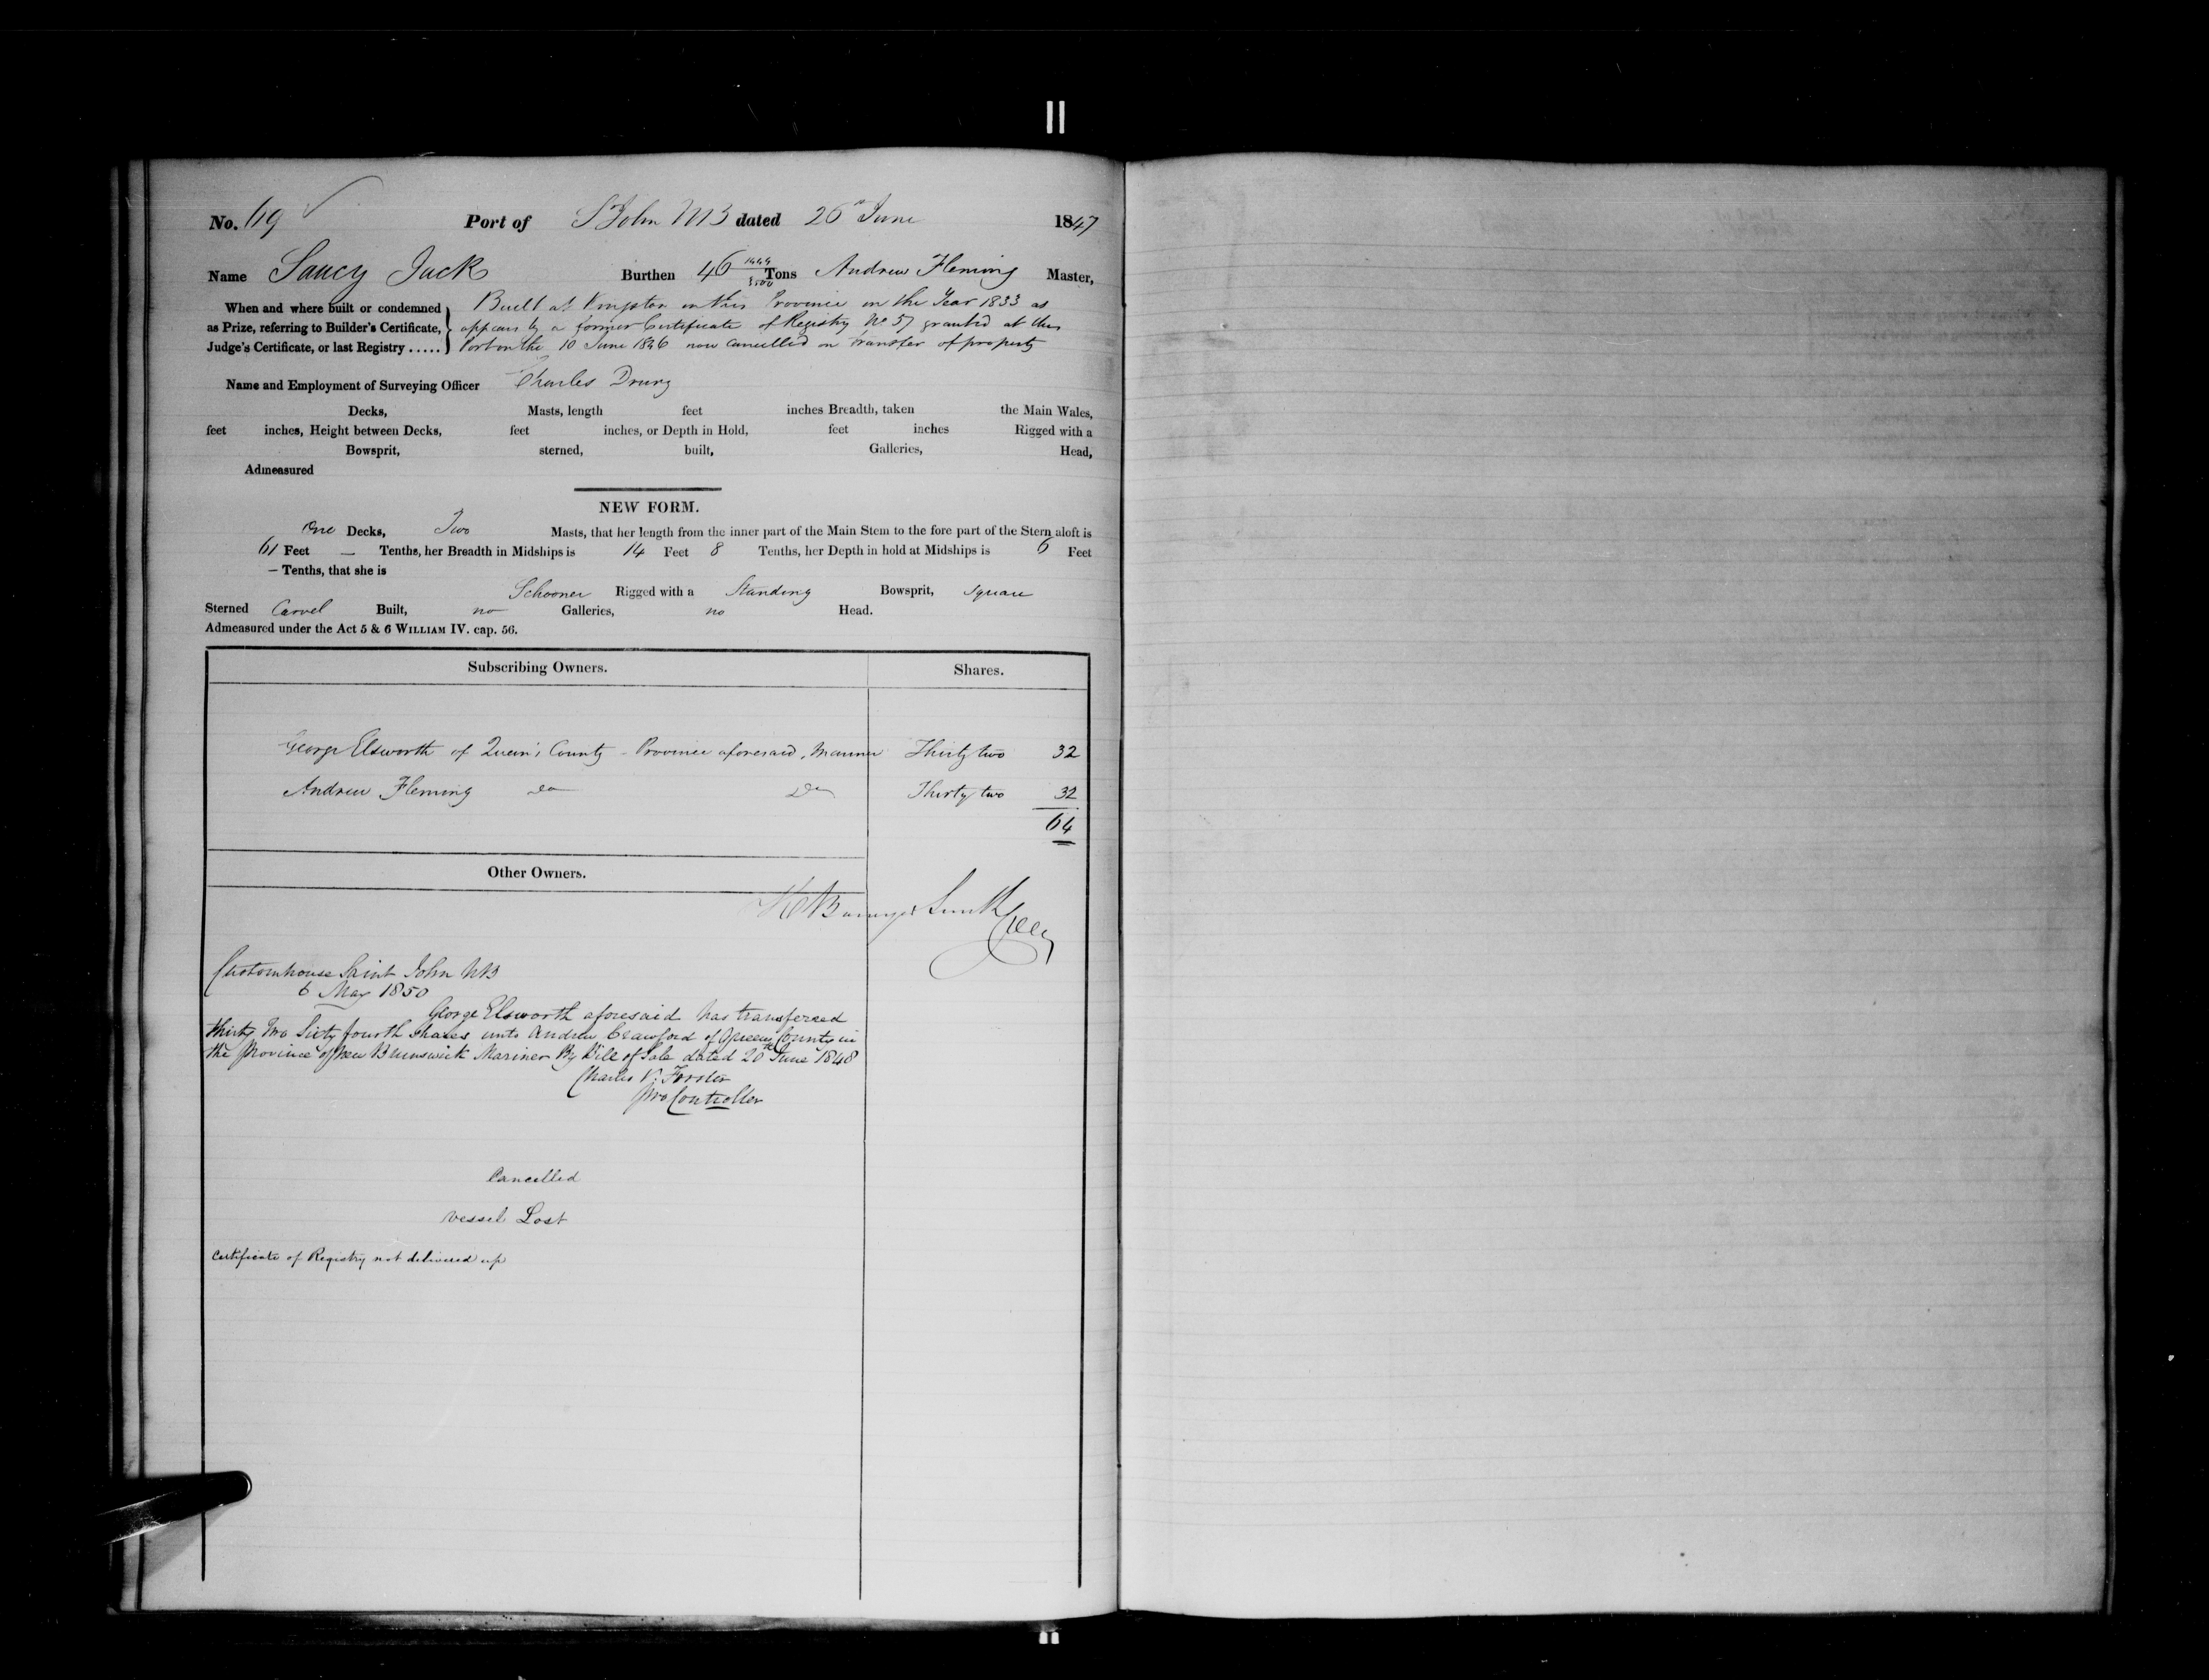 No. 69 Port of St John NB dated 26th June 1847
Name Saucy Jack Burthen 46 Tons Andrew Fleming Master,
When and where built or condemned Built at Kingston in this Province in the Year 1833 as
as Prize, referring to Builder's Certificate, appears by a former Certificate of Registry No 57 granted at this
Judge's Certificate, or last Registry ..... Port on the 10 June 1846 now cancelled on transfer of property
Name and Employment of Surveying Officer Charles Drury
Decks, Masts, length feet inches Breadth, taken the Main Wales,
feet inches, Height between Decks, feet inches, or Depth in Hold, feet inches Rigged with a
Bowsprit, sterned, built, Galleries, Head,
Admeasured
NEW FORM.
One Decks, Two Masts, that her length from the inner part of the Main Stem to the fore part of the Stern aloft is
61 Feet — Tenths, her Breadth in Midships is 14 Feet 8 Tenths, her Depth in hold at Midships is 6 Feet
— Tenths, that she is
Schooner Rigged with a Standing Bowsprit, Square
Sterned Carvel Built, no Galleries, no Head.
Admeasured under the Act 5 & 6 WILLIAM IV. cap. 56.
Subscribing Owners. Shares.
George Elsworth of Queen's County - Province aforesaid, Mariner Thirty two 32
Andrew Fleming Do Do Thirty two 32
64
Other Owners.
Smith
Customhouse Saint John NB
6 May 1850
George Elsworth aforesaid has transferred
thirty two Sixty fourth shares unto Andrew Crawford of Queens County in
the Province of New Brunswick Mariner By Bill of Sale dated 20th June 1848
Charles V. Forster
pro Controller
Cancelled
Vessel Lost
Certificate of Registry not delivered up